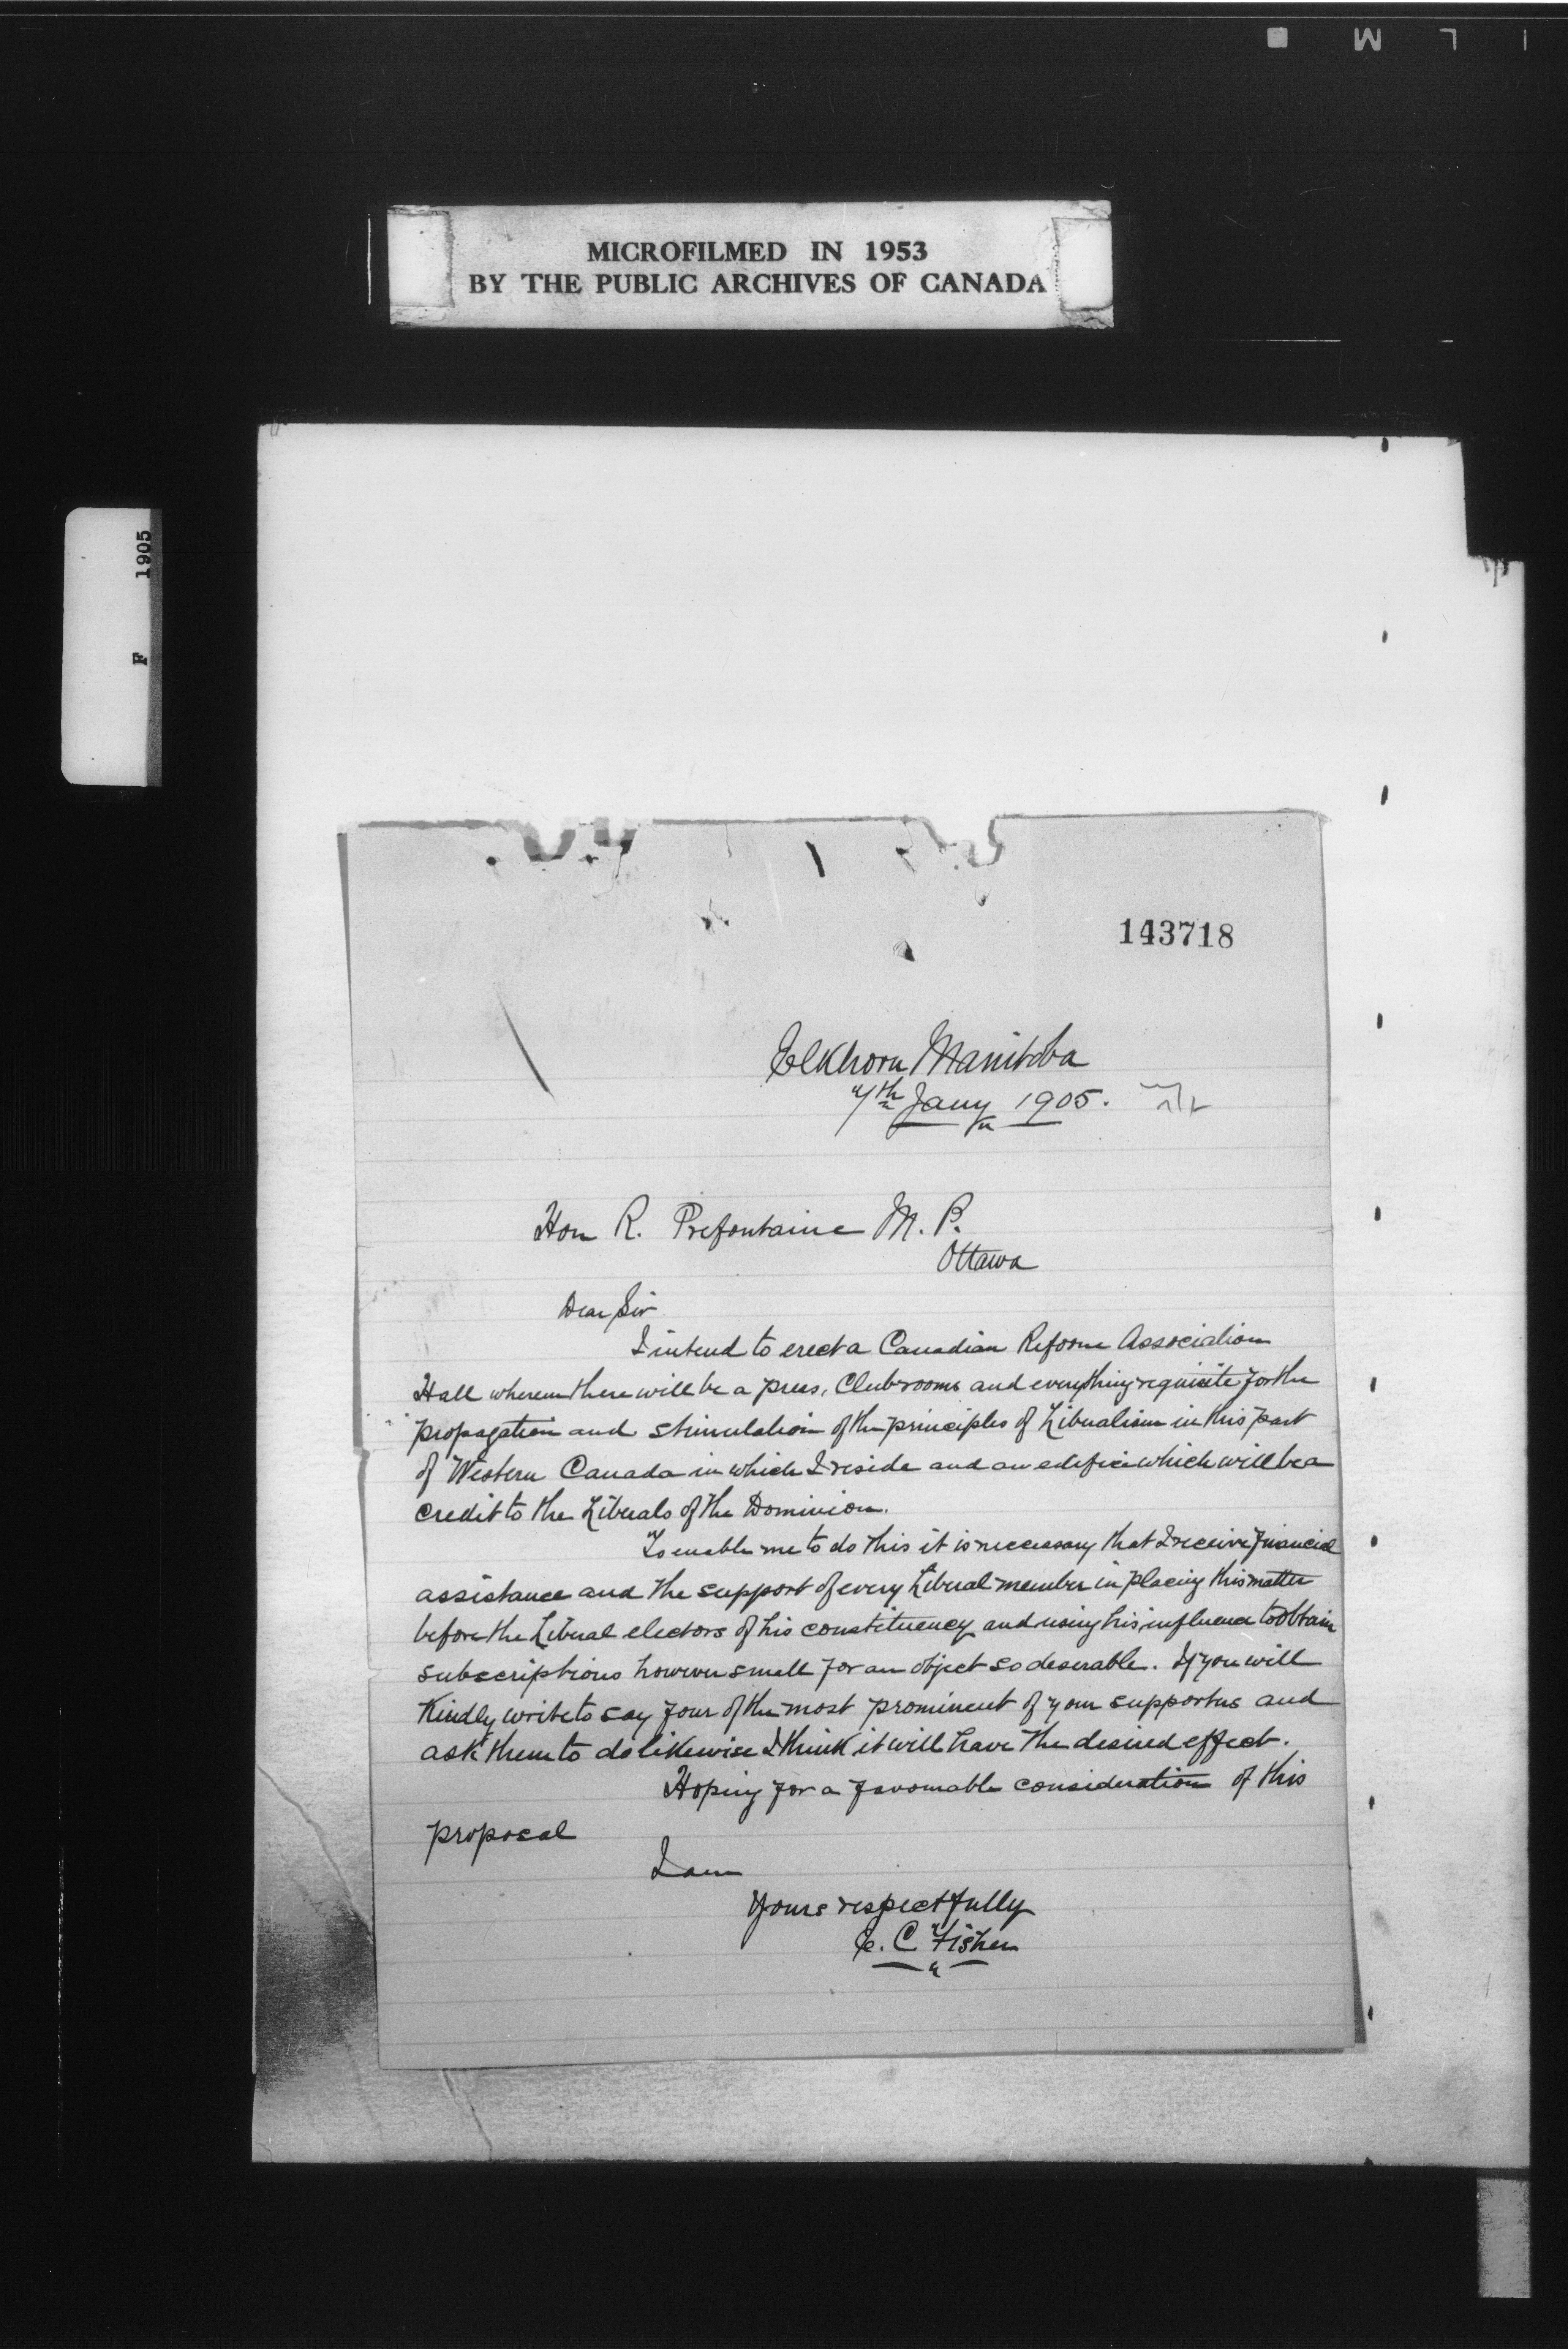 MICROFILMED IN 1953
BY THE PUBLIC ARCHIVES OF CANADA
1905
F
143718
Elkhorn Manitoba
7th Jany 1905.
Hon R. Prefontaine M. P.
Ottawa
Dear Sir
I intend to erect a Canadian Reform Association
Hall wherein there will be a press, Club rooms and everything requisite for the
propagation and stimulation of the principles of Liberalism in this part
of Western Canada in which I reside and an edifice which will be a
credit to the Liberals of the Dominion.
To enable me to do this it is necessary that I receive financial
assistance and the support of every Liberal member in placing this matter
before the Liberal electors of his constituency and using his influence to obtain
subscriptions however small for an object so deserable. If you will
Kindly write to say four of the most prominent of your supporters and
ask them to do likewise I think it will have the desired effect.
Hoping for a favourable consideration of this
proposal
I am
Yours respectfully
E. C Fisher